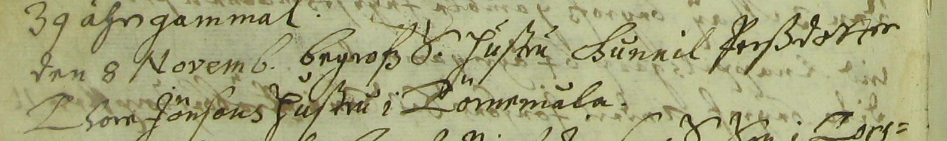 39 åhr gammal.
den 8 Novemb. begrofz S. Hustru Gunnil Perszdotter
Thore Jönsons Hustru i Törnemåla.
S. i Tors=